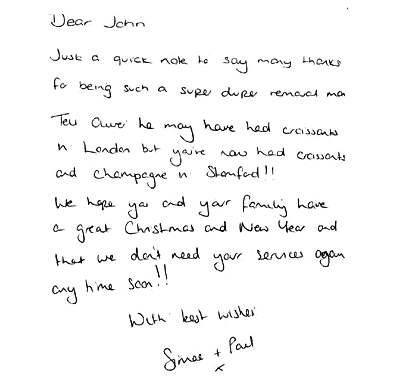 Dear John
Just a quick note to say many thanks
for being such a super duper removal man
Tell Oliver he may have had croissants
in London but you've now had croissants
and champagne in Stamford!!
We hope you and your family have
a great Christmas and New Year and
that we don't need your services again
any time soon!!
With best wishes
+ Paul
x